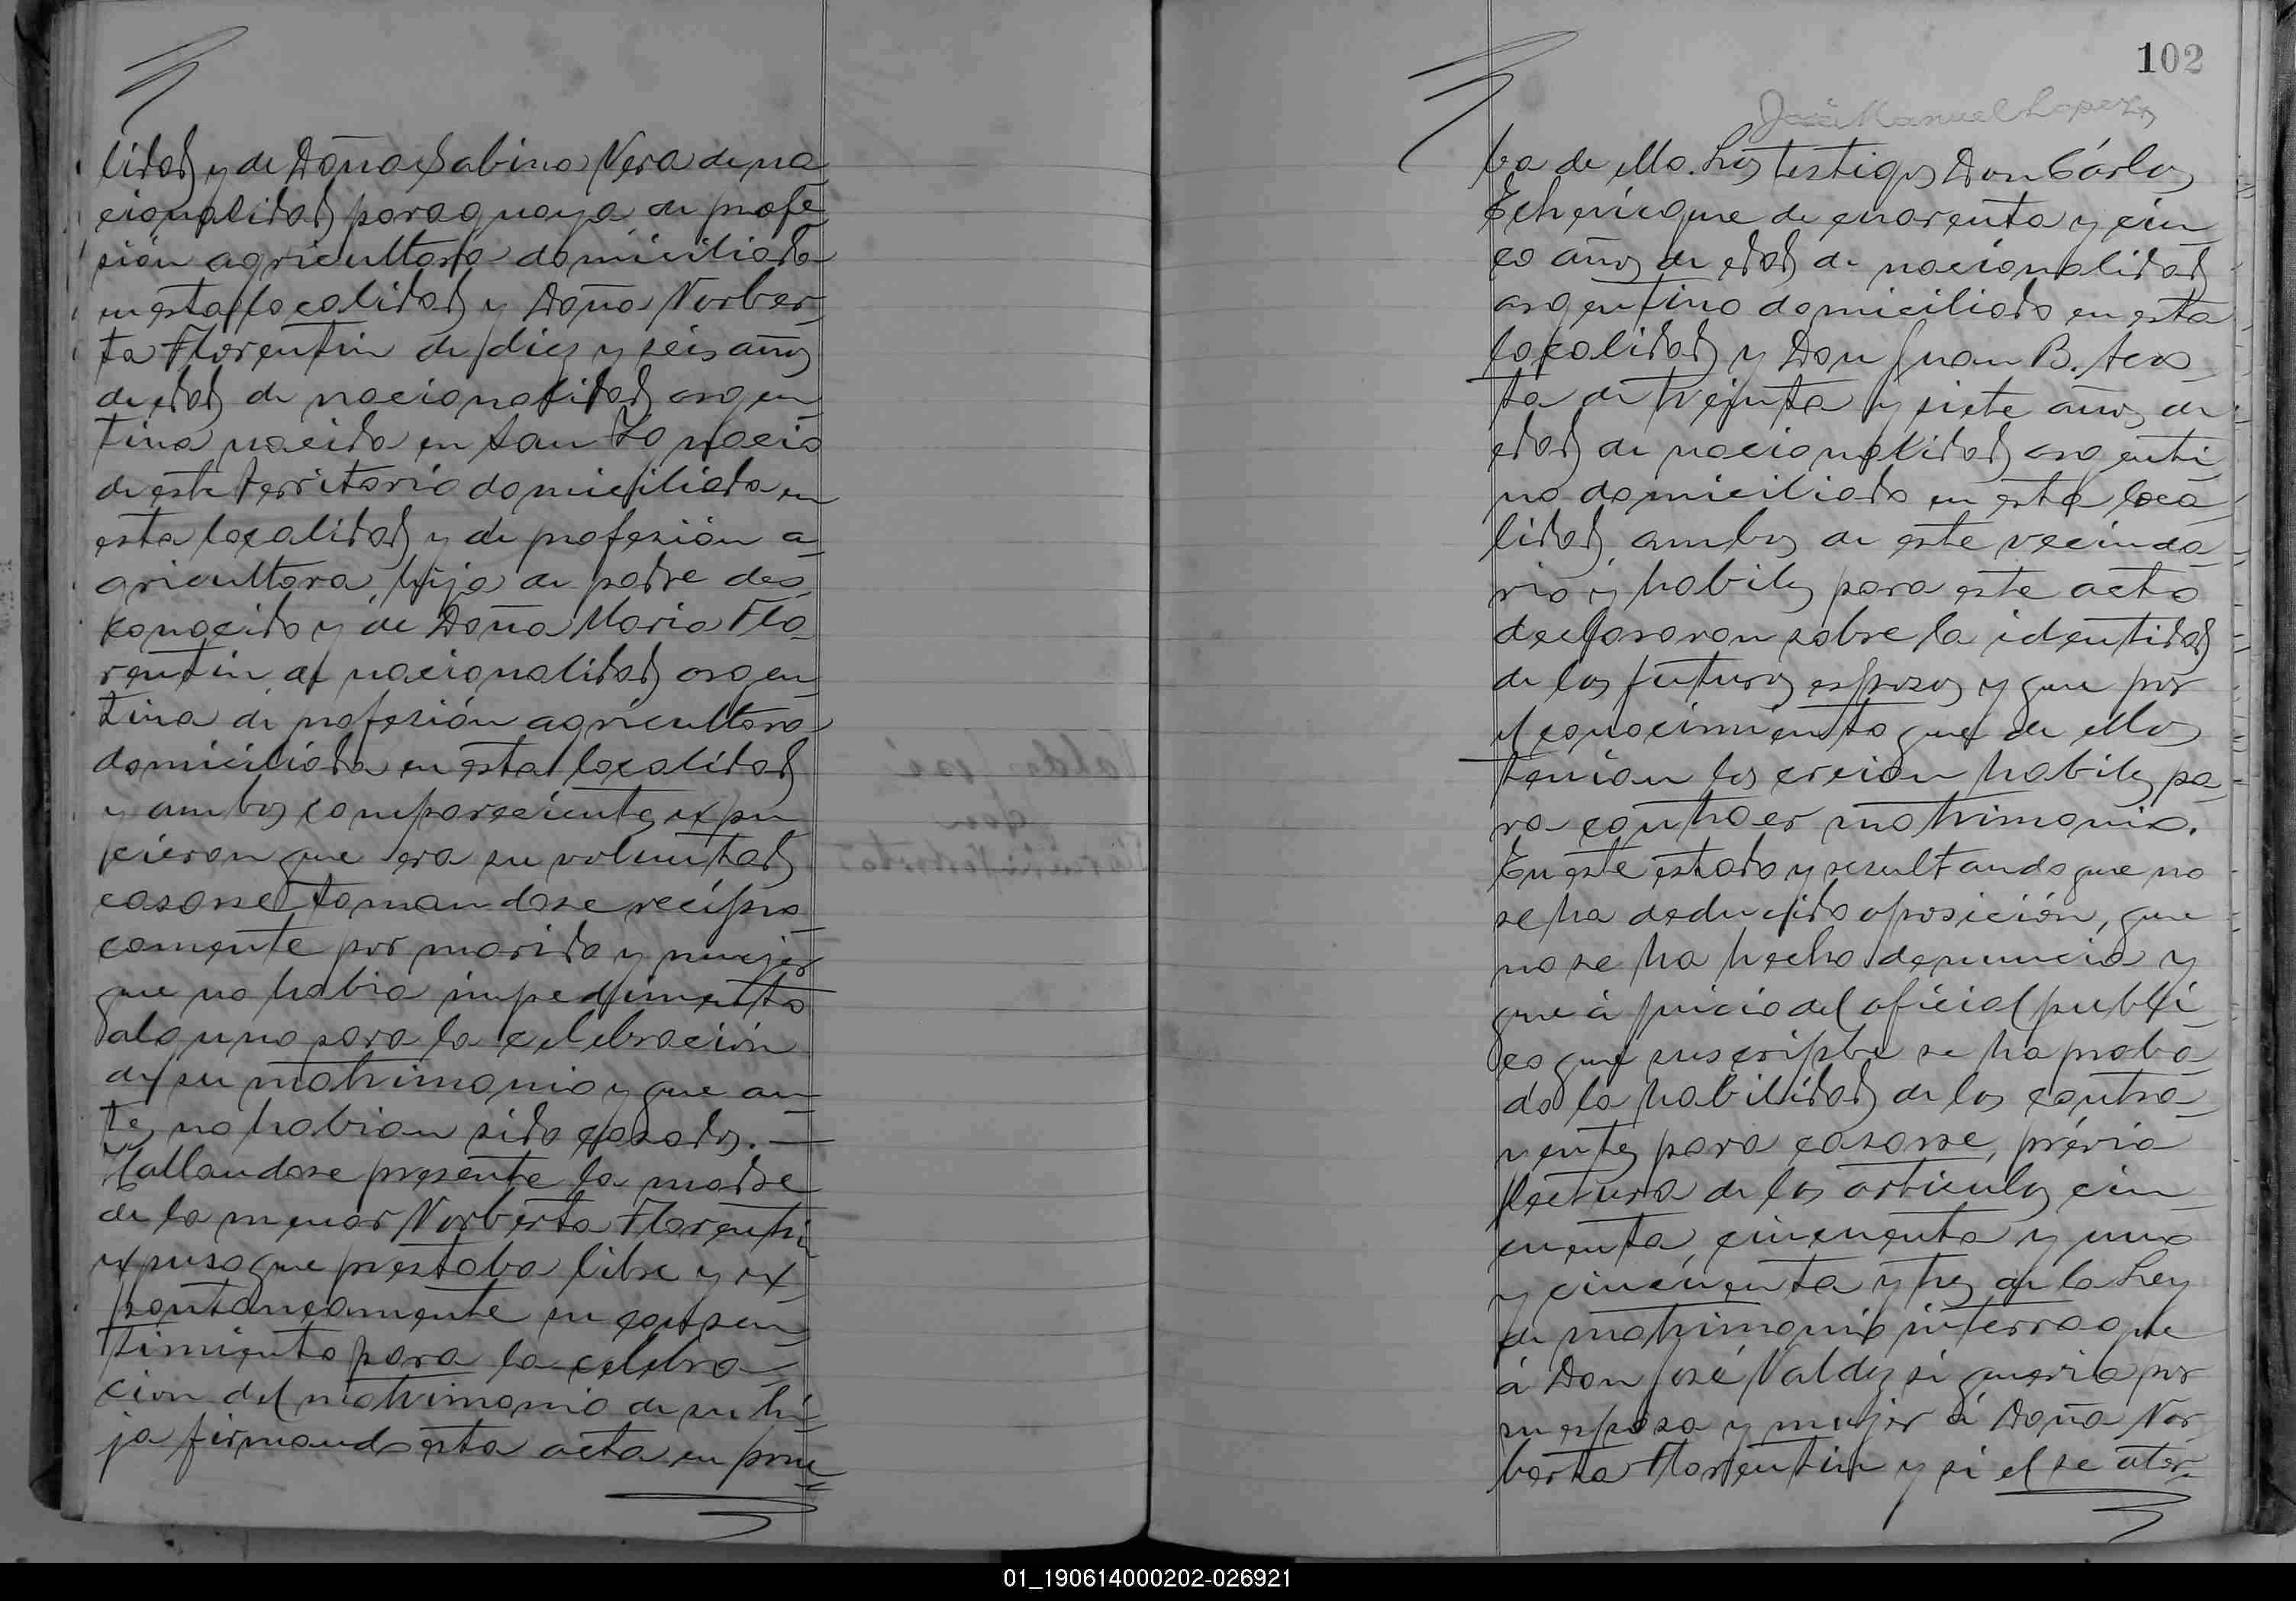 lidad y de Doña Sabina Vera de na
cionalidad paraguaya, de profe
sión agricultora domiciliada
en esta localidad y Doña Norber
ta Florentin de diez y seis años
de edad de nacionalidad argen
tina nacida en San Ignacio
de este territorio domiciliada en
esta localidad y de profesión a
gricultora, hija de padre des
conocido y de Doña Maria Flo
rentin de nacionalidad argen
tina de profesión agricultora
domiciliada en esta localidad
y ambos comparecientes expu
cieron que era su voluntad
casarse tomandose recipro
camente por marido y mujer
que no habia impedimento
alguno para la celebración
de su matrimonio y que an
tes no habian sido casados. —
Hallandose presente la madre
de la menor Norberta Florentin
expuso que prestaba libre y ex
pontaneamente su consen
timiento para la celebra
cion del matrimonio de su hi
ja firmando esta acta en prue
102
José Manuel Lopez
ba de ello. Los testigos Don Cárlos
de cuarenta y cin
co años de edad de nacionalidad
argentino domiciliado en esta
localidad y Don Juan B. Acos
ta de treinta y siete años de
edad de nacionalidad argenti
no domiciliado en esta loca
lidad, ambos de este vecinda
rio y habiles para este acto
declararon sobre la identidad
de los futuros esposos y que por
el conocimiento que de ellos
tenian los creian habiles pa
ra contraer matrimonio.
En este estado y resultando que no
se ha deducido oposición, que
no se ha hecho denuncia y
que á juicio del oficial publi
co que suscripbe se ha proba
do la habilidad de los contra
yentes para casarse, prévia
lectura de los articulos cin
cuenta, cincuenta y uno
y cincuenta y tres de la Ley
de matrimonio interrogue
á Don José Valdez si queria por
su esposa y mujer á Doña Nor
berta Florentin y si el se ator
01_190614000202-026921